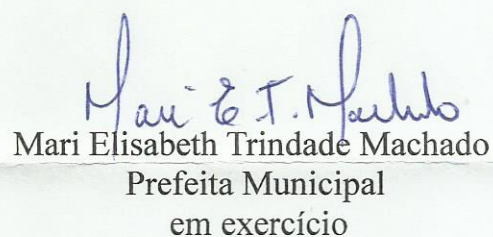 Mari E. T. Machado
Mari Elisabeth Trindade Machado
Prefeita Municipal
em exercício